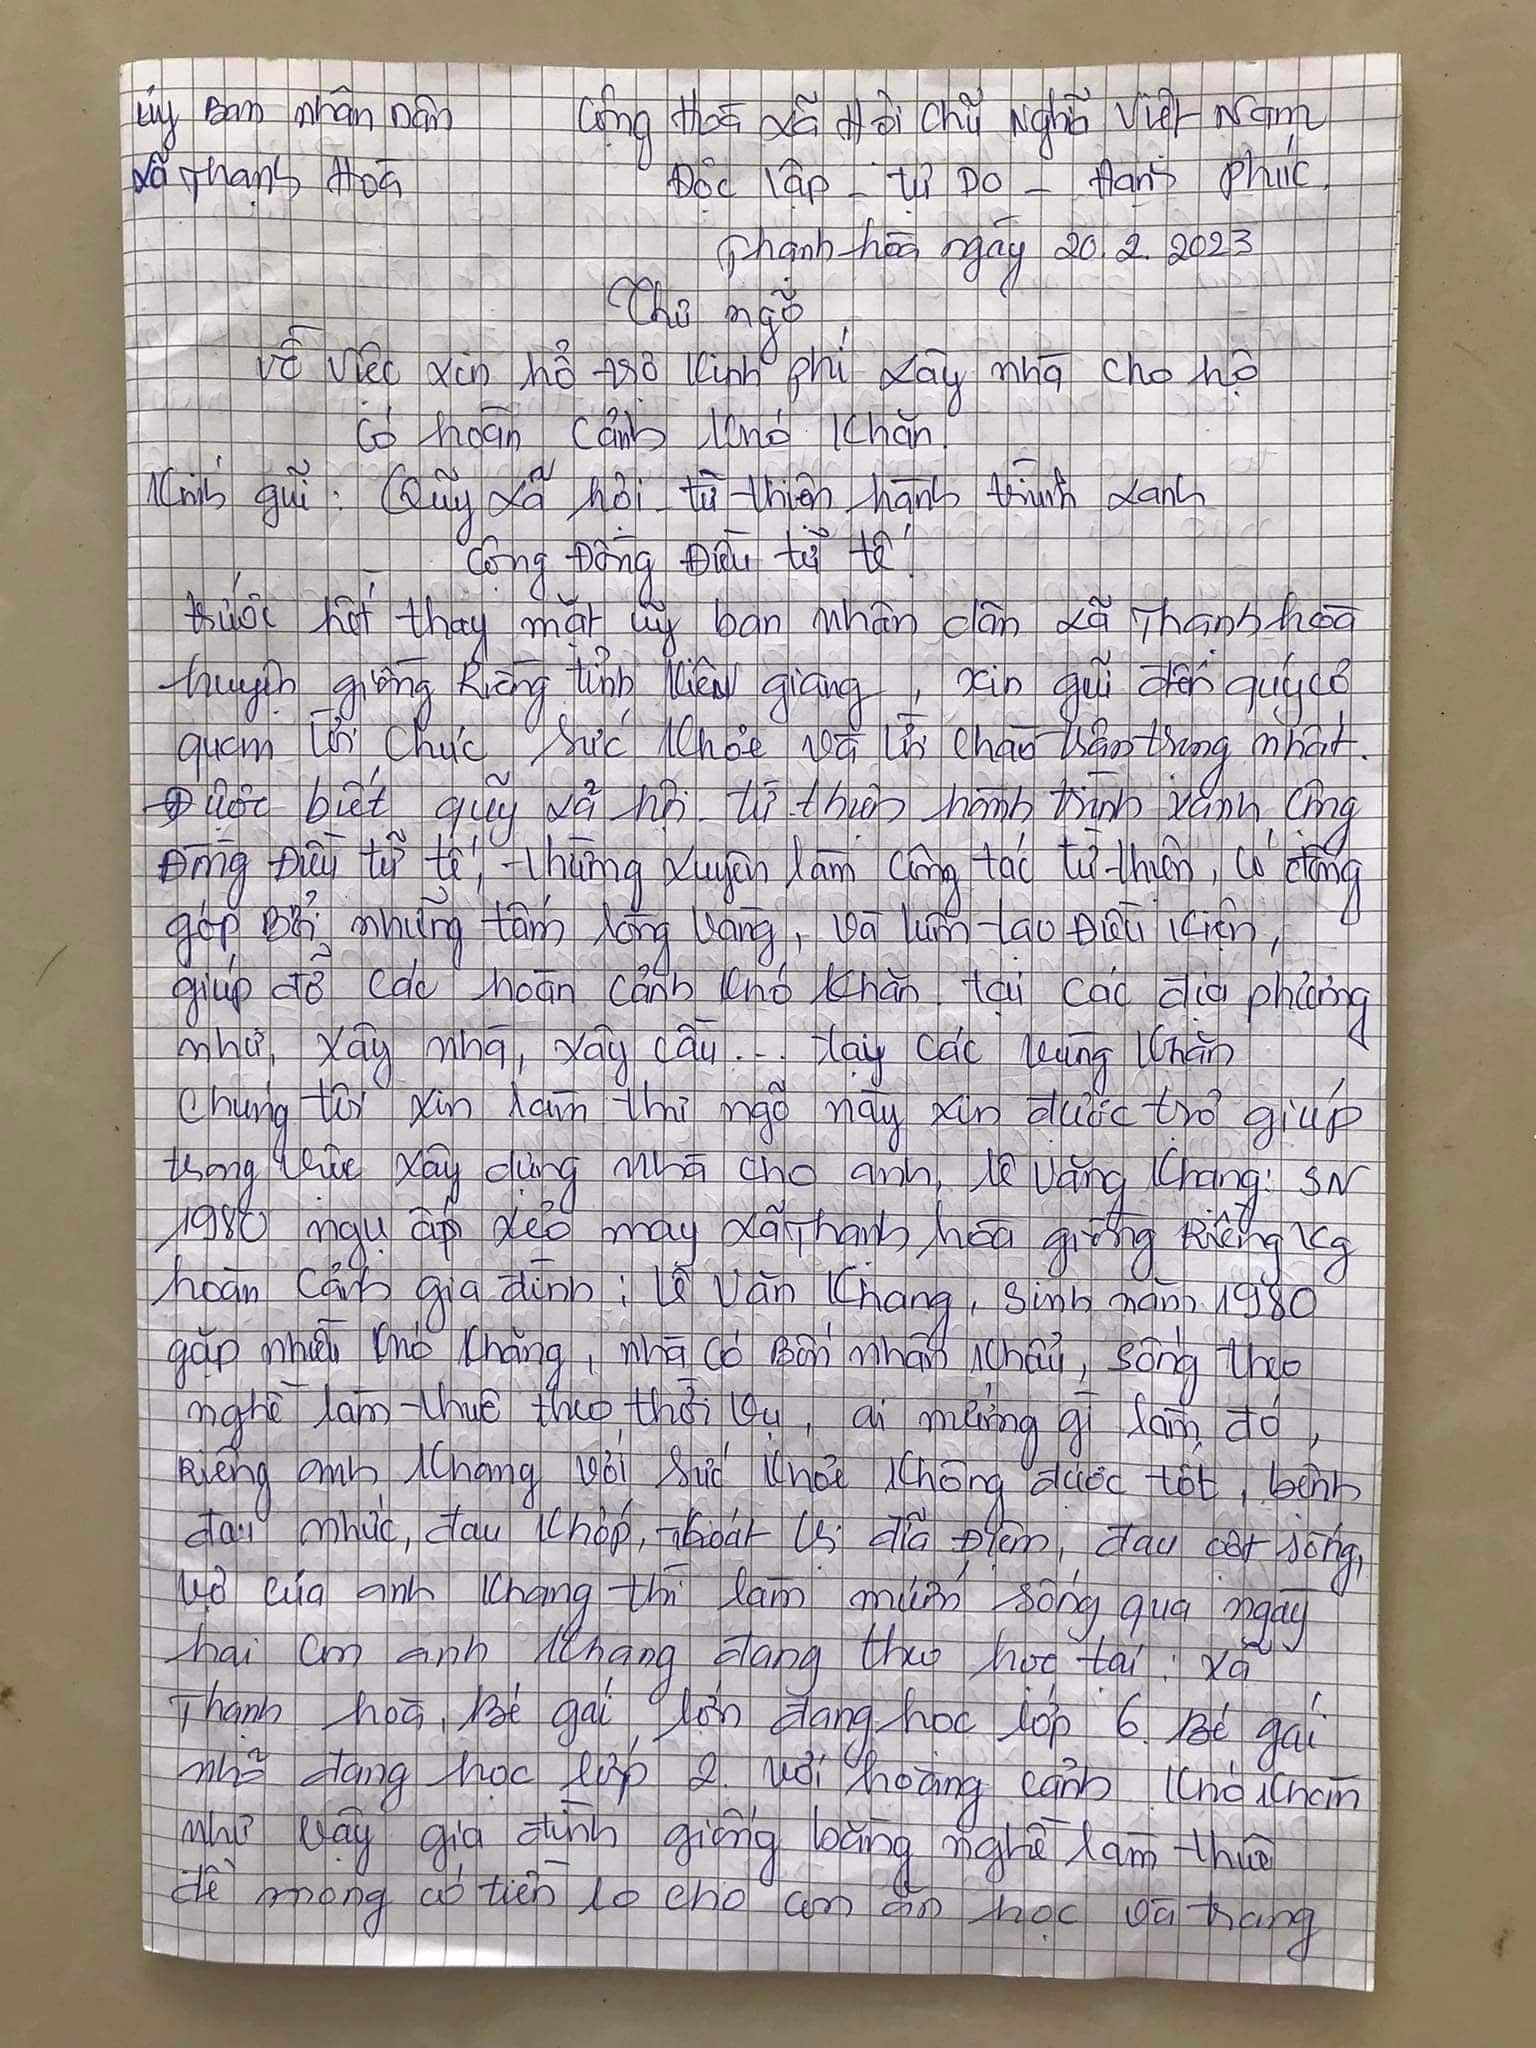 ủy Ban nhân Dân Cộng Hoà Xã Hội Chủ Nghĩa Việt Nam
Xã Thạnh Hoà Độc lập - Tự Do - Hạnh phúc
Thạnh hoà ngày 20.2.2023
Thư ngỏ
Về việc xin hổ trợ kinh phí xây nhà cho hộ
Có hoàn cảnh khó khăn.
Kính gửi: Quỹ xã hội từ thiện hành trình xanh
Cộng Đồng Điều tử tế!
trước hết thay mặt ủy ban nhân dân xã Thạnh hoà
huyện giồng Riềng tỉnh kiên giang, xin gửi đến quý cơ
quan lời chúc sức khỏe và lời chào trân trọng nhất.
Được biết quỹ xả hội từ thiện hành trình xanh cộng
Đồng Điều tử tế, thường xuyên làm công tác từ thiện, có đóng
góp Bởi những tấm lòng vàng, và luôn tạo Điều kiện,
giúp đở các hoàn cảnh khó khăn tại các địa phương
như, xây nhà, xây cầu... tại các vùng khăn
chúng tôi xin làm thư ngỏ này xin được trở giúp
trong việc xây dựng nhà cho anh, lê Văng khang: SN
1980 ngụ ấp xẻo mây xã Thạnh hòa giồng Riềng kg
hoàn cảnh gia đình: lê Văn khang, sinh năm 1980
gặp nhiều khó khăng, nhà có Bốn nhân khẩu, sống theo
nghề làm thuê theo thời vụ, ai mướng gì làm đó,
Riêng anh khang với sức khỏe không được tốt, bệnh
đau nhức, đau khớp, thoát vị đĩa Đệm, đau cột sống,
vợ của anh khang thì làm mướn sống qua ngày
hai con anh khang đang theo học tại: xã
Thạnh hoà, Bé gái lớn đang học lớp 6. Bé gái
nhỏ đang học lớp 2. với hoàng cảnh khó khăn
như vậy gia đình giống bằng nghề làm thuê
để mong có tiền lo cho con ăn học và trang